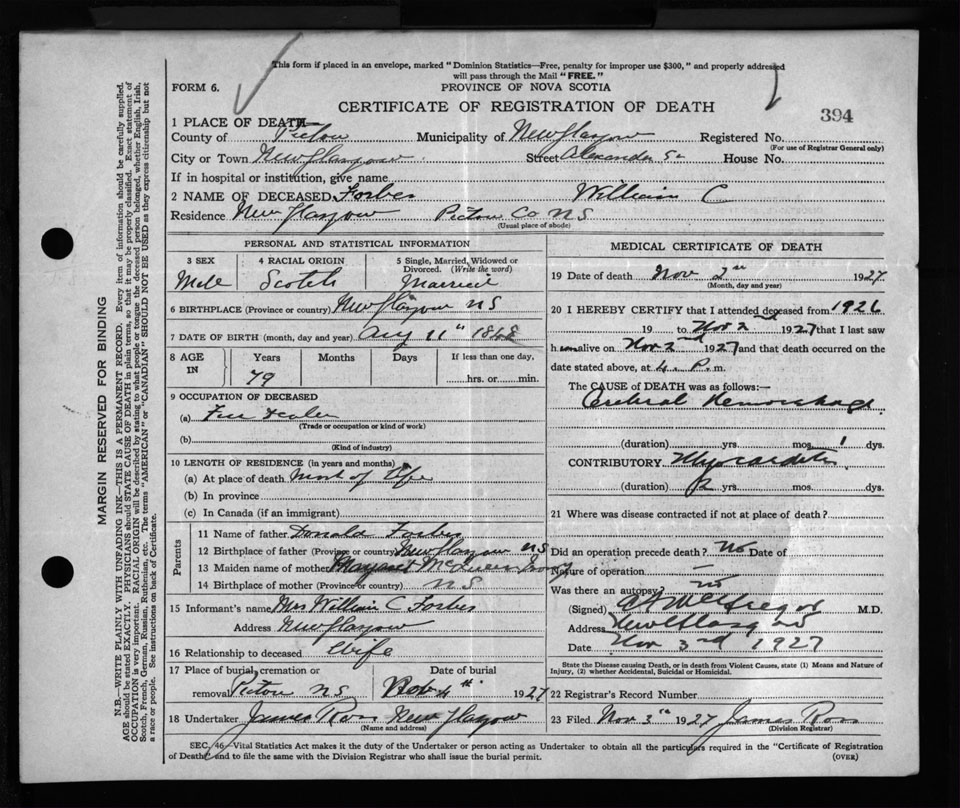 This form if placed in an envelope, marked "Dominion Statistics—Free, penalty for improper use $300," and properly addressed
will pass through the Mail "FREE."
FORM 6.
PROVINCE OF NOVA SCOTIA
CERTIFICATE OF REGISTRATION OF DEATH
394
1 PLACE OF DEATH
County of Pictou Municipality of New Glasgow Registered No.
(For use of Registrar General only)
City or Town New Glasgow Street Alexander St House No.
If in hospital or institution, give name
2 NAME OF DECEASED Forbes William C
Residence New Glasgow Pictou Co N S
(Usual place of abode)
PERSONAL AND STATISTICAL INFORMATION
3 SEX
Male
4 RACIAL ORIGIN
Scotch
5 Single, Married, Widowed or
Divorced. (Write the word)
Married
6 BIRTHPLACE (Province or country) New Glasgow N S
7 DATE OF BIRTH (month, day and year) Aug 11th 1848
8 AGE
IN
Years
79
Months
Days
If less than one day.
hrs. or min.
9 OCCUPATION OF DECEASED
(a) Dealer
(Trade or occupation or kind of work)
(b)
(Kind of industry)
10 LENGTH OF RESIDENCE (in years and months)
(a) At place of death most of life
(b) In province
(c) In Canada (if an immigrant)
Parents
11 Name of father Donald Forbes
12 Birthplace of father (Province or country) New Glasgow NS
13 Maiden name of mother Margaret
14 Birthplace of mother (Province or country) N S
15 Informant's name Mrs William C Forbes
Address New Glasgow
16 Relationship to deceased Wife
17 Place of burial, cremation or
removal Pictou N S
Date of burial
Nov 4th 1927
18 Undertaker James Ross New Glasgow
(Name and address)
MEDICAL CERTIFICATE OF DEATH
19 Date of death Nov 2nd 1927
(Month, day and year)
20 I HEREBY CERTIFY that I attended deceased from 1926
19 to Nov 2nd 1927 that I last saw
him alive on Nov 2nd 1927 and that death occurred on the
date stated above, at 4 P. m.
The CAUSE of DEATH was as follows:—
Cerebral Hemorrhage
(duration) yrs. mos. 1 dys.
CONTRIBUTORY Myocarditis
(duration) 2 yrs. mos. dys.
21 Where was disease contracted if not at place of death?
Did an operation precede death? No Date of
Nature of operation —
Was there an autopsy? no
(Signed) McGregor M.D.
Address New Glasgow
Date Nov 3rd 1927
State the Disease causing Death, or in death from Violent Causes, state (1) Means and Nature of
Injury, (2) whether Accidental, Suicidal or Homicidal.
22 Registrar's Record Number
23 Filed Nov 3rd 1927 James Ross
(Division Registrar)
SEC. 46—Vital Statistics Act makes it the duty of the Undertaker or person acting as Undertaker to obtain all the particulars required in the "Certificate of Registration
of Death" and to file the same with the Division Registrar who shall issue the burial permit.
(OVER)
MARGIN RESERVED FOR BINDING
N.B.—WRITE PLAINLY WITH UNFADING INK—THIS IS A PERMANENT RECORD. Every item of information should be carefully supplied.
AGE should be stated EXACTLY. PHYSICIANS should STATE CAUSE OF DEATH in plain terms, so that it may be properly classified. Exact statement of
OCCUPATION is very important. RACIAL ORIGIN will be described by stating to what people or tongue the deceased person belonged, whether English, Irish,
Scotch, French, German, Russian, Ruthenian, etc. The terms "AMERICAN" or "CANADIAN" SHOULD NOT BE USED as they express citizenship but not
a race or people. See instructions on back of Certificate.